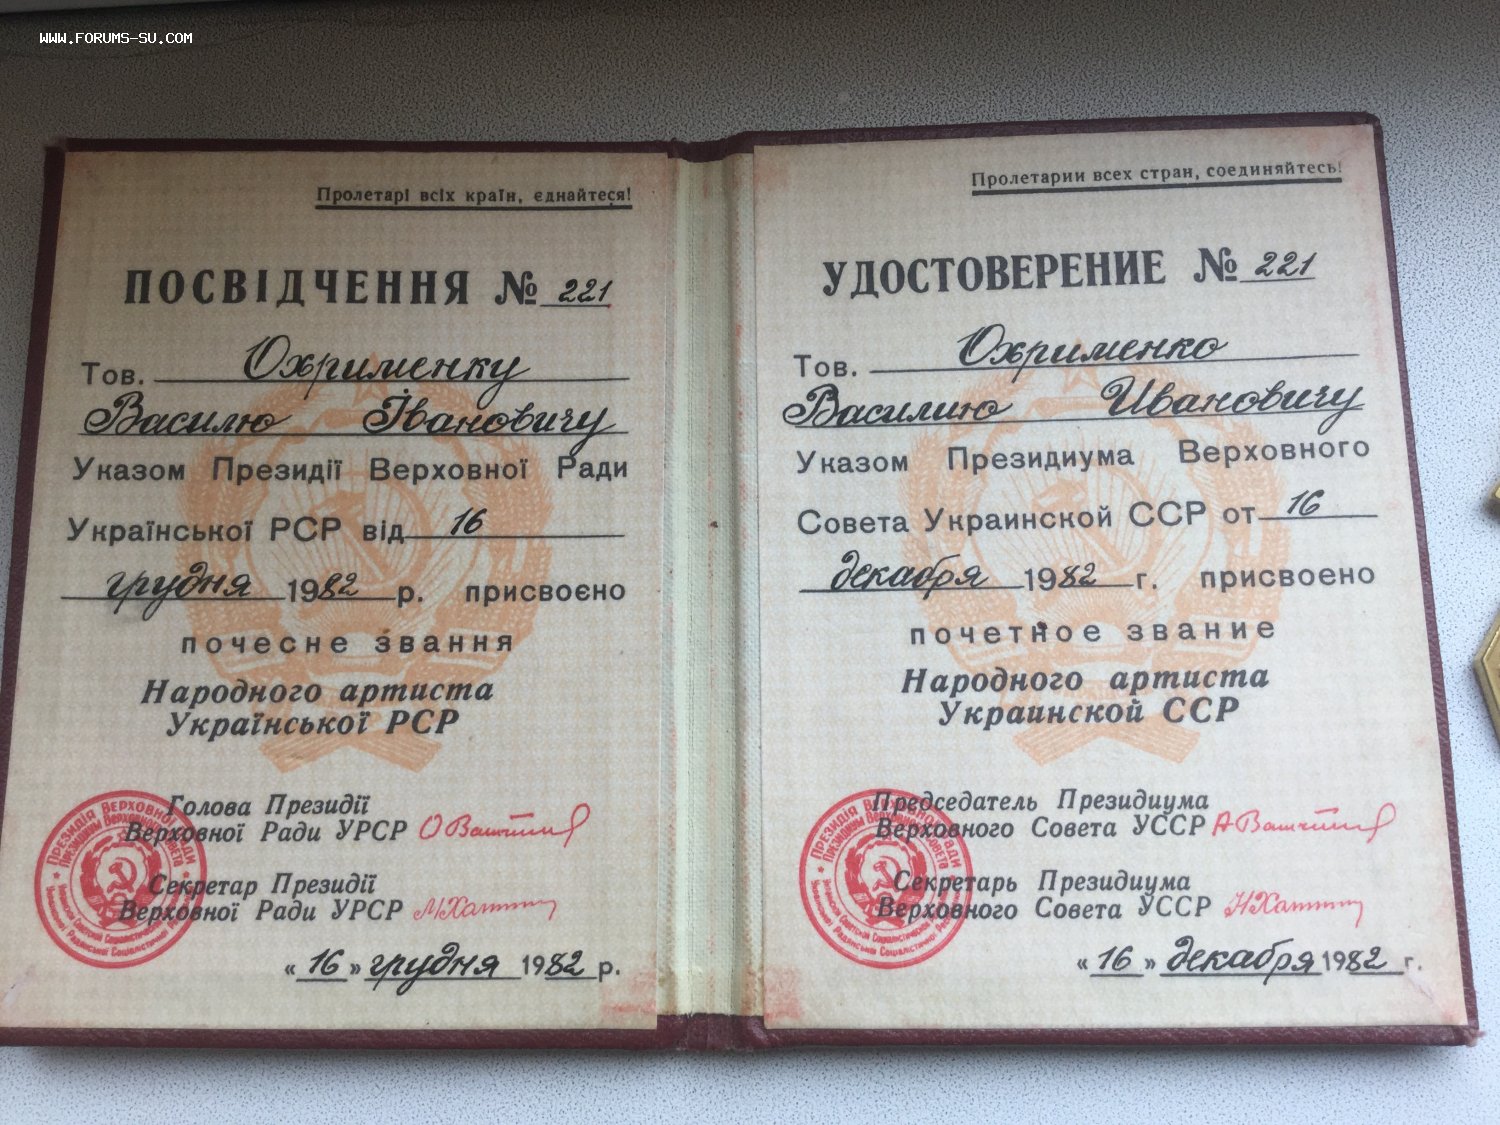 WWW.FORUMS-SU.COM
Пролетарі всіх країн, єднайтеся!
ПОСВІДЧЕННЯ № 221
Тов. Охрименку
Василю Івановичу
Указом Президії Верховної Ради
Української РСР від 16
грудня 1982 р. присвоєно
почесне звання
Народного артиста
Української РСР
Голова Президії
Верховної Ради УРСР
Секретар Президії
Верховної Ради УРСР
«16» грудня 1982 р.
Пролетарии всех стран, соединяйтесь!
УДОСТОВЕРЕНИЕ № 221
Тов. Охрименко
Василию Ивановичу
Указом Президиума Верховного
Совета Украинской ССР от 16
декабря 1982 г. присвоено
почетное звание
Народного артиста
Украинской ССР
Председатель Президиума
Верховного Совета УССР
Секретарь Президиума
Верховного Совета УССР
«16» декабря 1982 г.